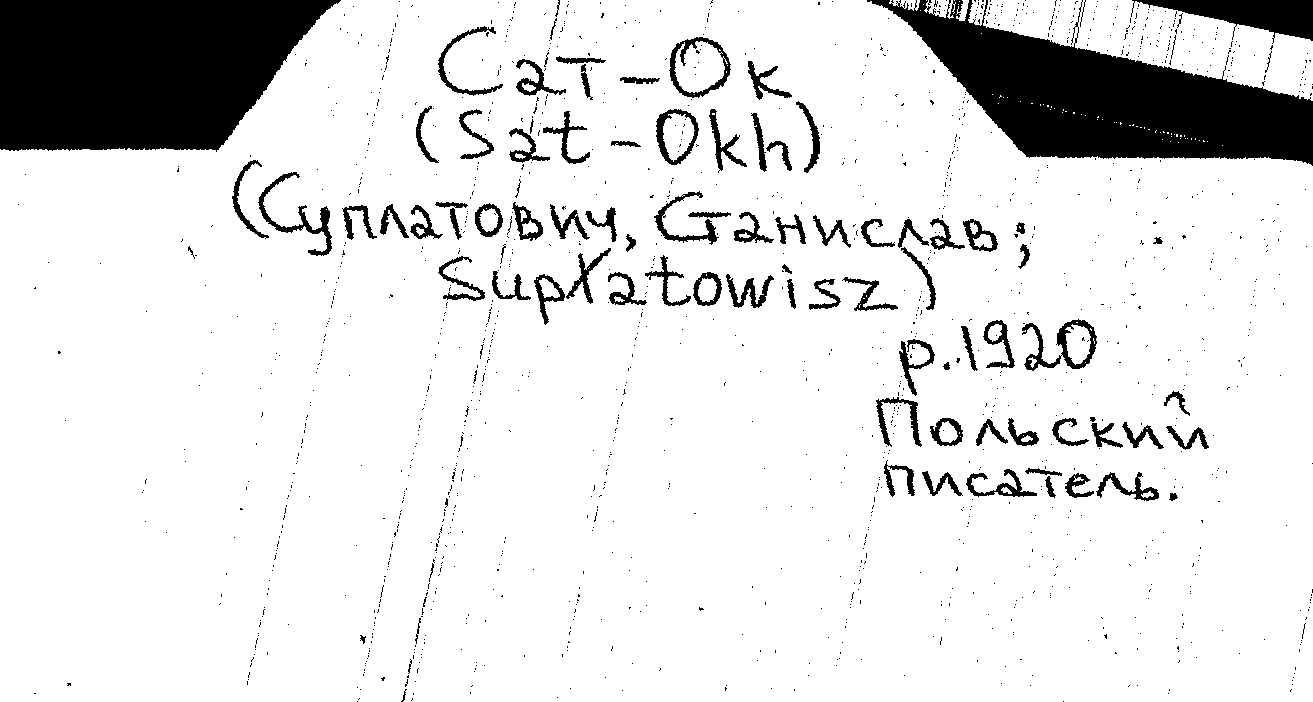 Сат-Ок
(Sat-Okh)
(Суплатович, Станислав;
Supłatowisz)
р. 1920
Польский
писатель.